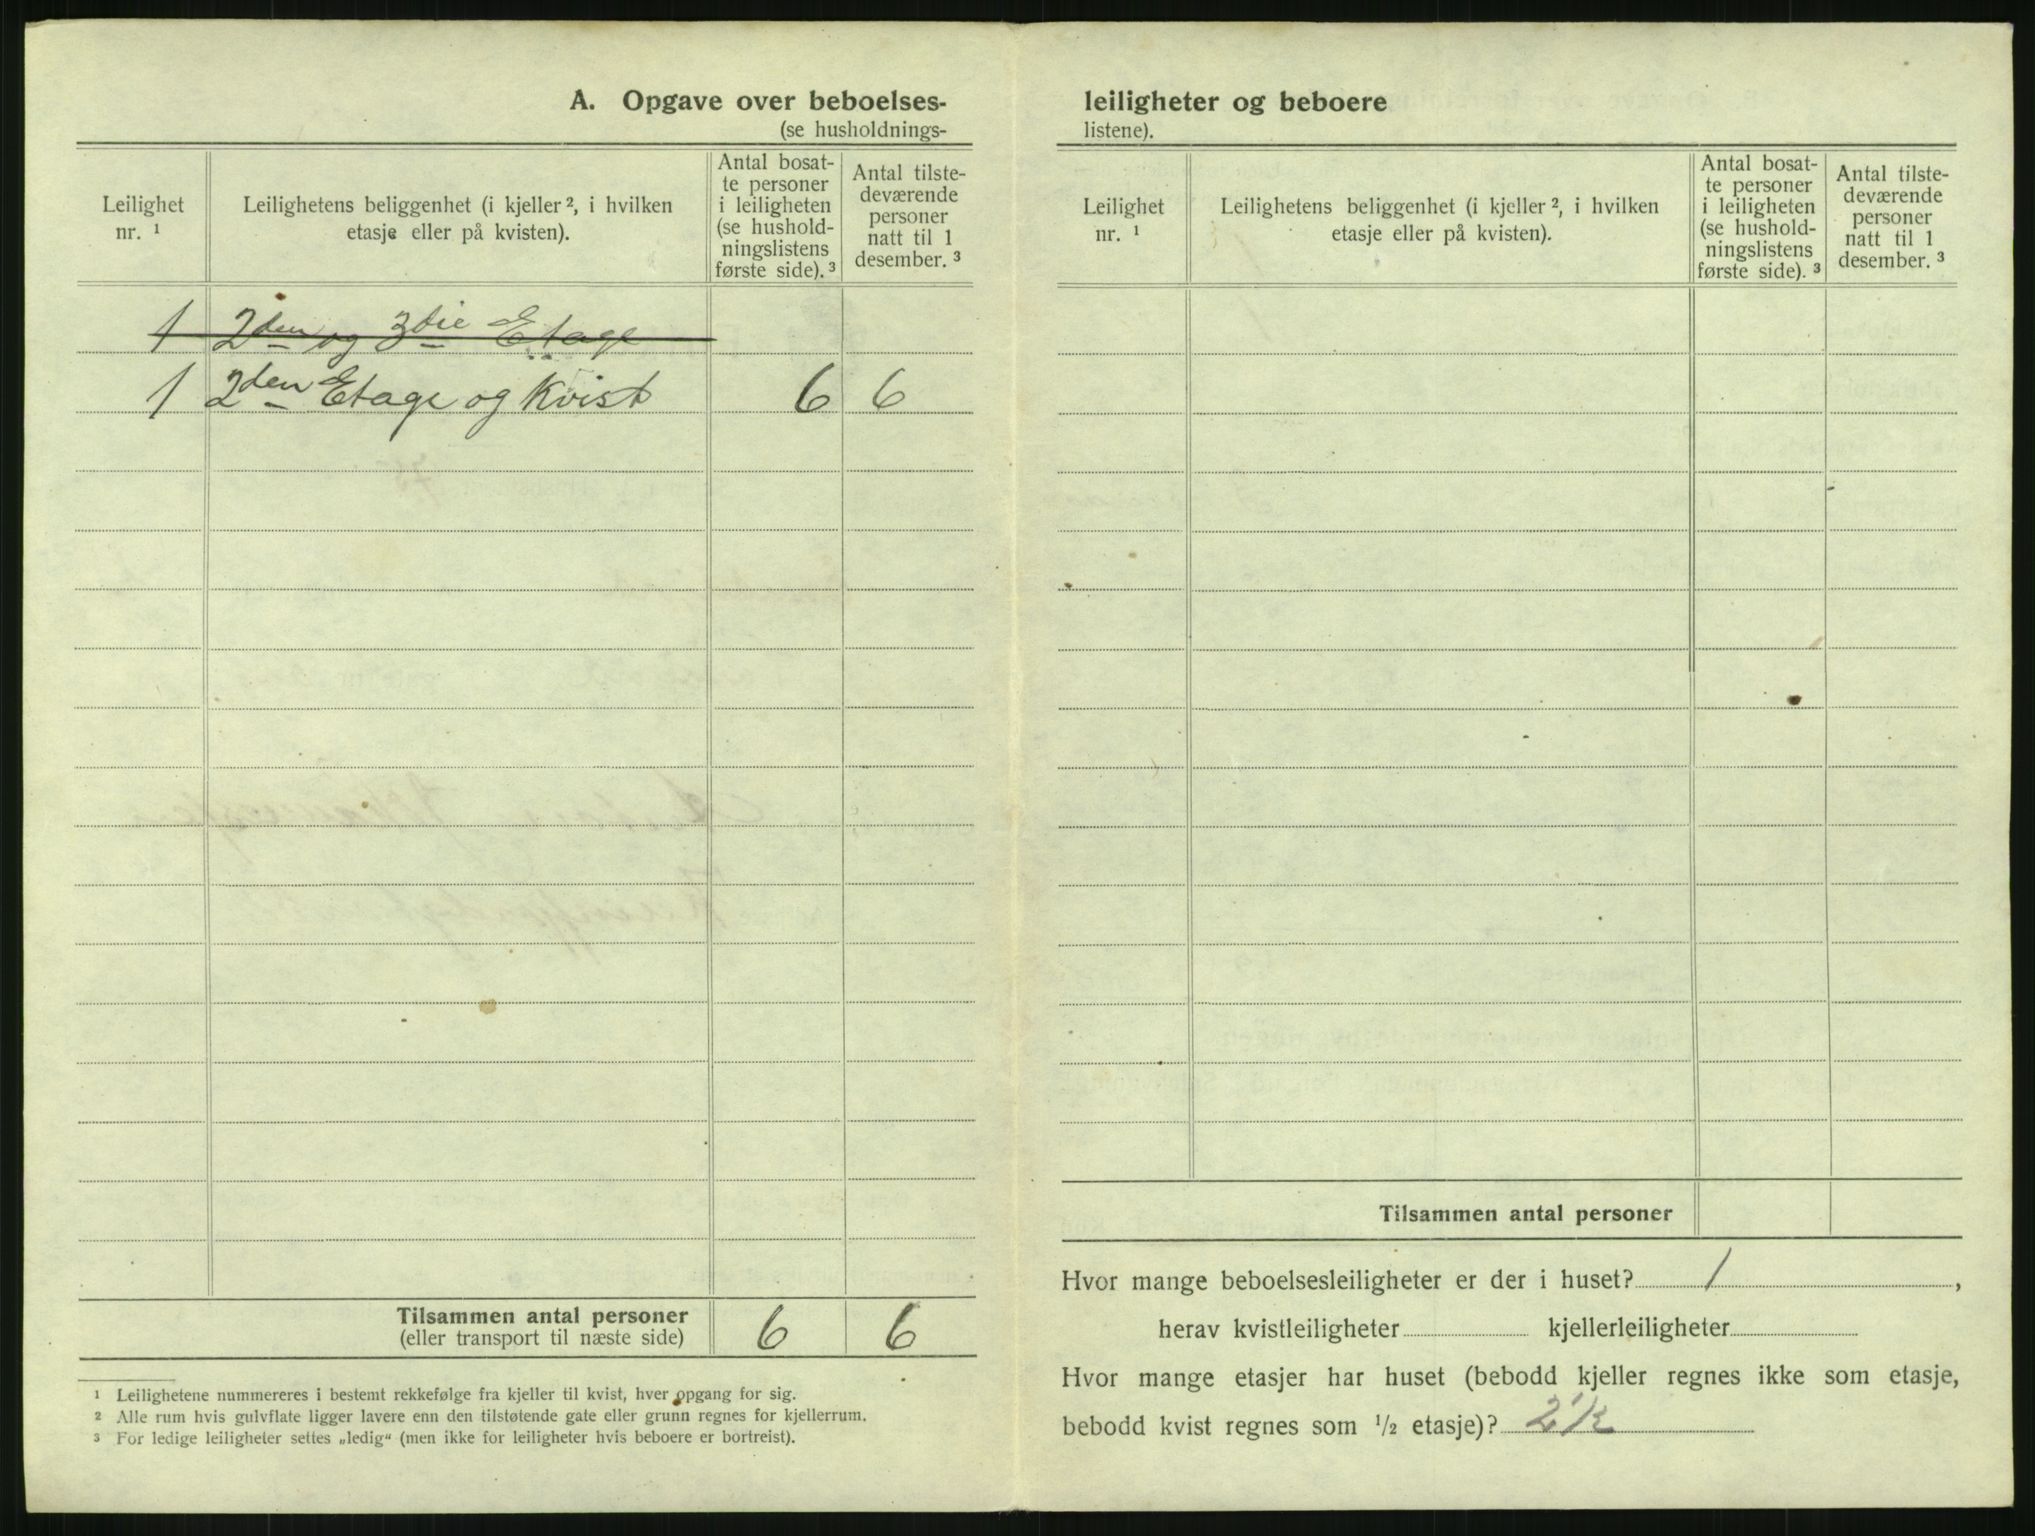 A. Opgave over beboelses-
(se husholdnings-
Leilighet nr. ¹
Leilighetens beliggenhet (i kjeller ², i hvilken
etasje eller på kvisten).
Antal bosat-
te personer
i leiligheten
(se hushold-
ningslistens
første side). ³
Antal tilste-
deværende
personer
natt til 1
desember. ³
1 2den og 3die Etage
1 2den Etage og Kvist 6 6
Tilsammen antal personer 6 6
(eller transport til næste side)
¹ Leilighetene nummereres i bestemt rekkefølge fra kjeller til kvist, hver opgang for sig.
² Alle rum hvis gulvflate ligger lavere enn den tilstøtende gate eller grunn regnes for kjellerrum.
³ For ledige leiligheter settes „ledig“ (men ikke for leiligheter hvis beboere er bortreist).
leiligheter og beboere
listene).
Leilighet nr. ¹
Leilighetens beliggenhet (i kjeller ², i hvilken
etasje eller på kvisten).
Antal bosat-
te personer
i leiligheten
(se hushold-
ningslistens
første side). ³
Antal tilste-
deværende
personer
natt til 1
desember. ³
Tilsammen antal personer
Hvor mange beboelsesleiligheter er der i huset? 1 ,
herav kvistleiligheter kjellerleiligheter
Hvor mange etasjer har huset (bebodd kjeller regnes ikke som etasje,
bebodd kvist regnes som ½ etasje)? 2½